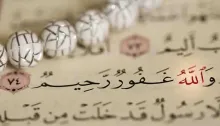 أَلِيمٌ ٧٣
وَٱللَّهُ غَفُورٌ رَّحِيمٌ ٧٤
رَسُولٌ قَدْ خَلَتْ مِن قَبْلِ